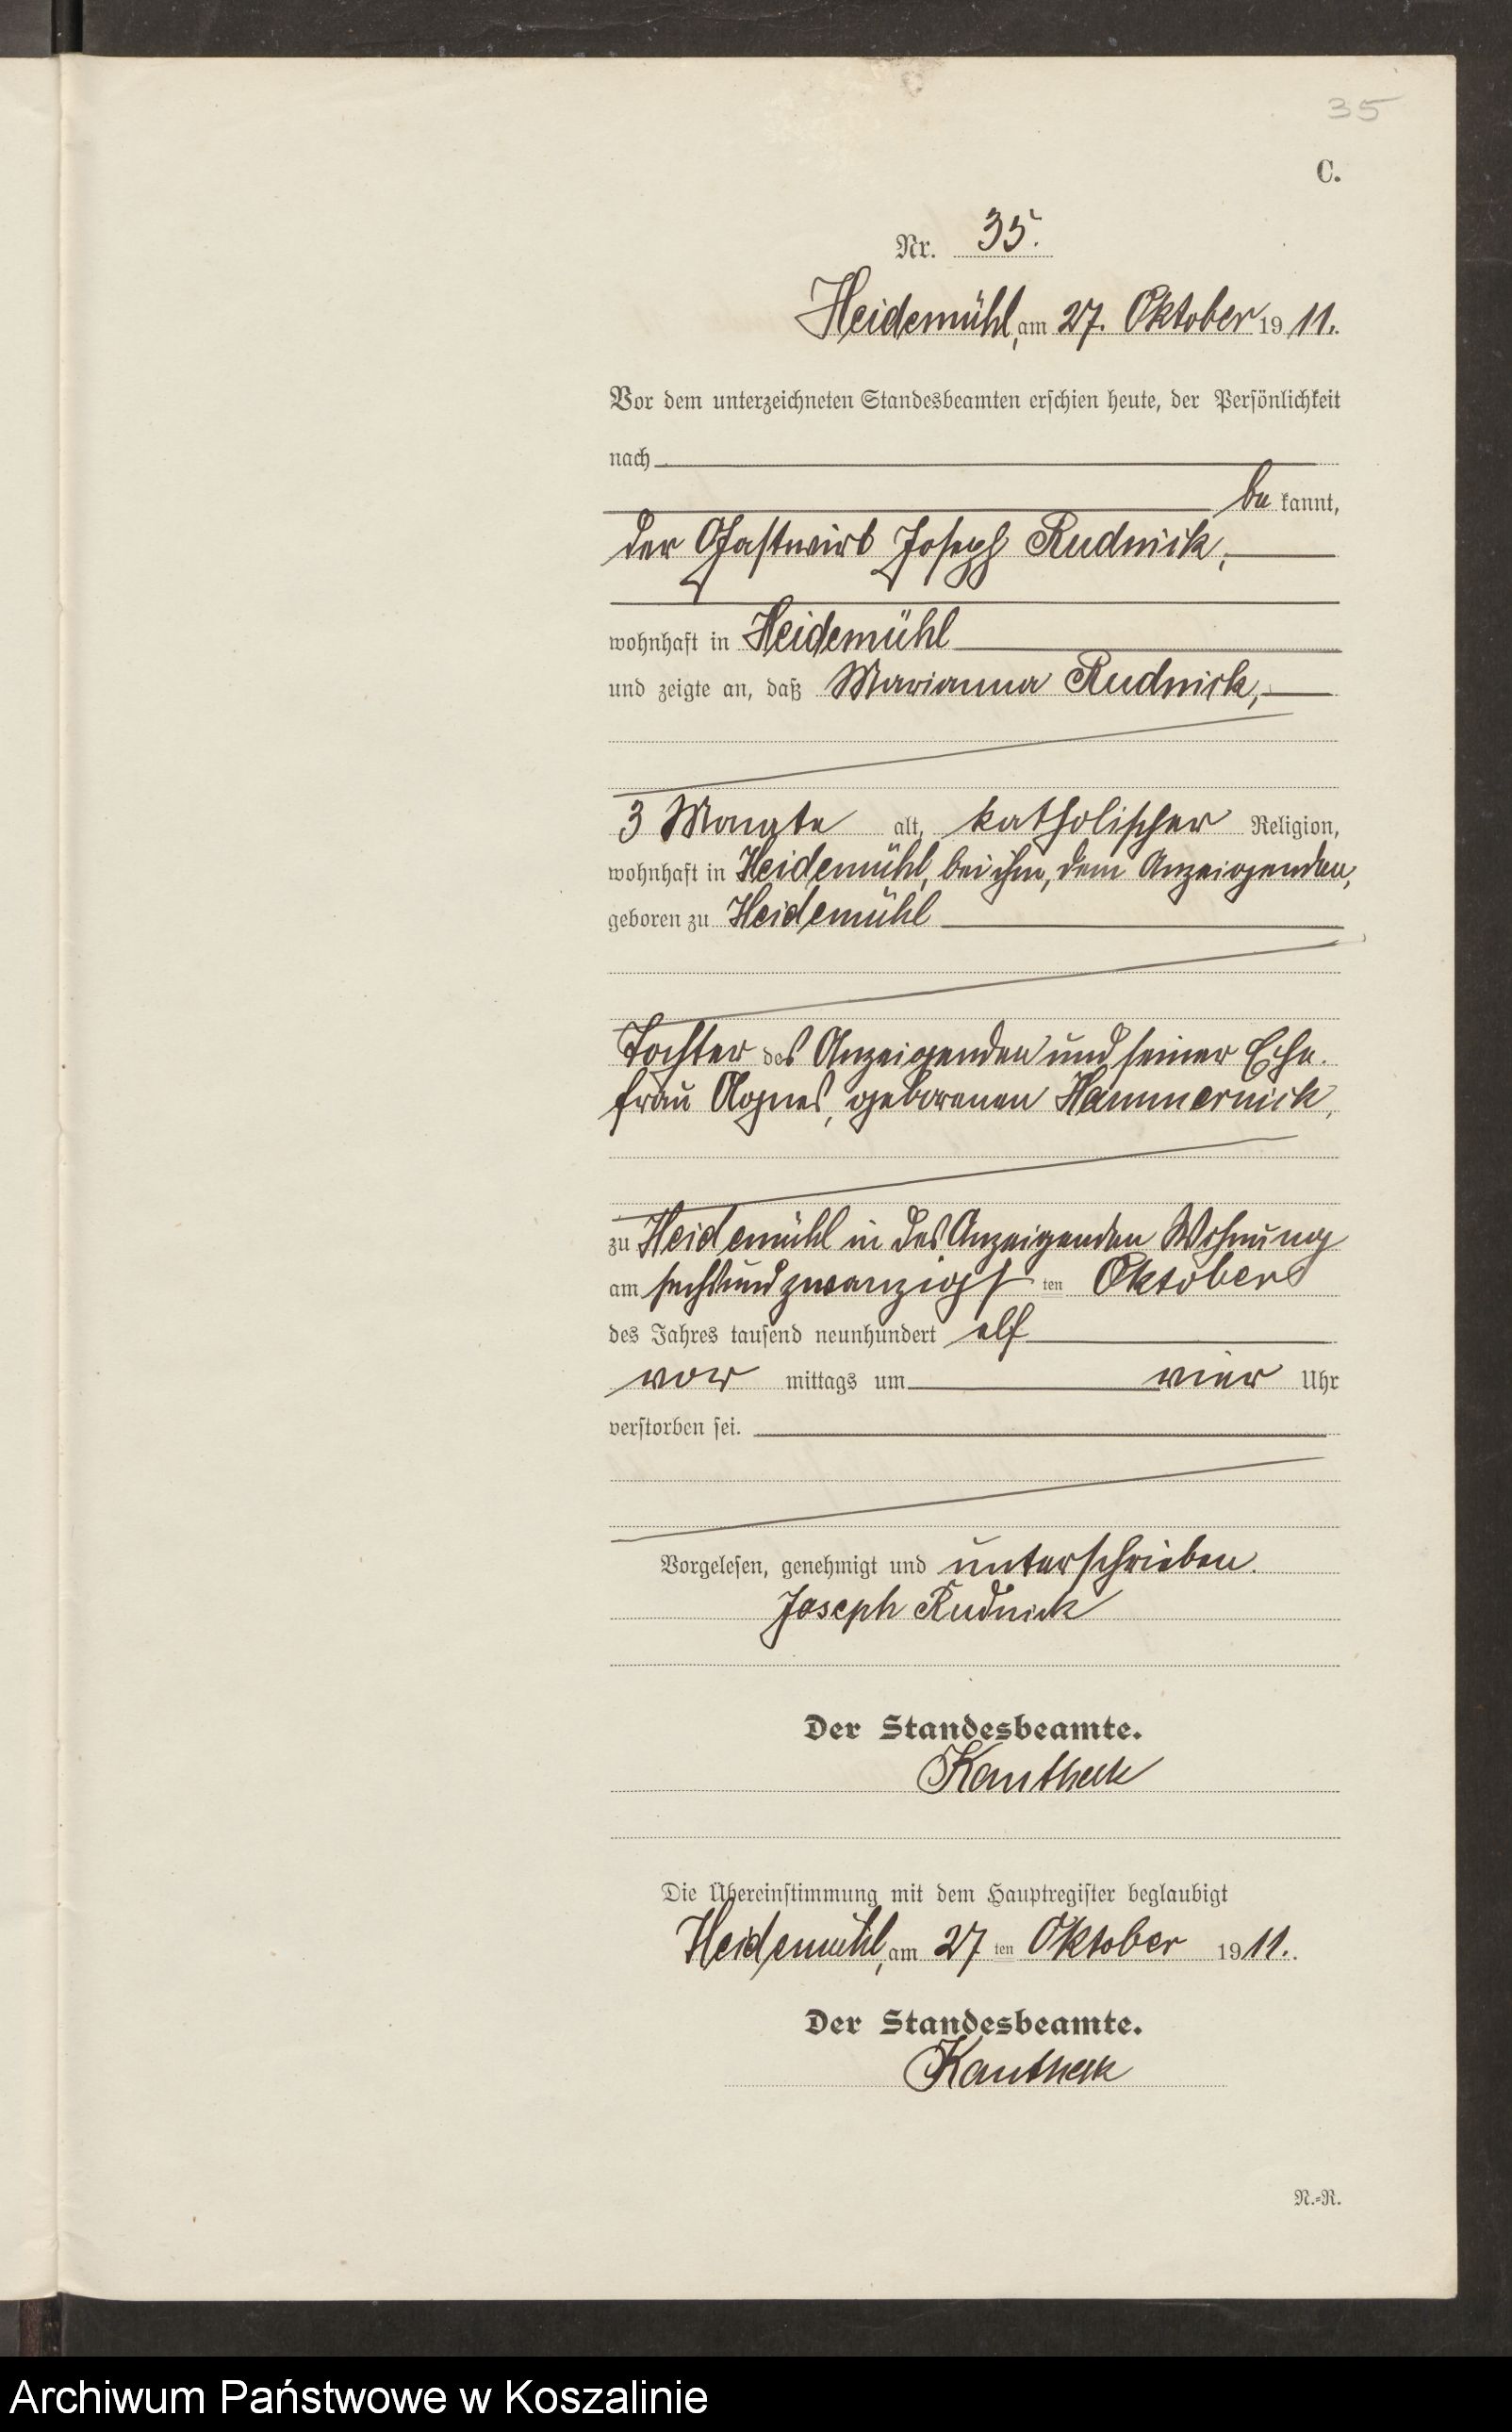 35
C.
Nr. 35.
Heidemühl, am 27. Oktober 1911.
Vor dem unterzeichneten Standesbeamten erschien heute, der Persönlichkeit
nach
be kannt,
der Gastwirt Joseph Rudnick,
wohnhaft in Heidemühl
und zeigte an, daß Marianna Rudnick,
3 Monate alt, katholischer Religion,
wohnhaft in Heidemühl, bei ihm, dem Anzeigenden,
geboren zu Heidemühl
Tochter des Anzeigenden und seiner Ehe.
frau Agnes, geborenen Hammernick,
zu Heidemühl in des Anzeigenden Wohnung
am sechsundzwanzigsten Oktober
des Jahres tausend neunhundert elf
vor mittags um vier Uhr
verstorben sei.
Vorgelesen, genehmigt und unterschrieben.
Joseph Rudnick
Der Standesbeamte.
Die Übereinstimmung mit dem Hauptregister beglaubigt
Heidemühl, am 27 ten Oktober 1911.
Der Standesbeamte.
N.=R.
Archiwum Państwowe w Koszalinie